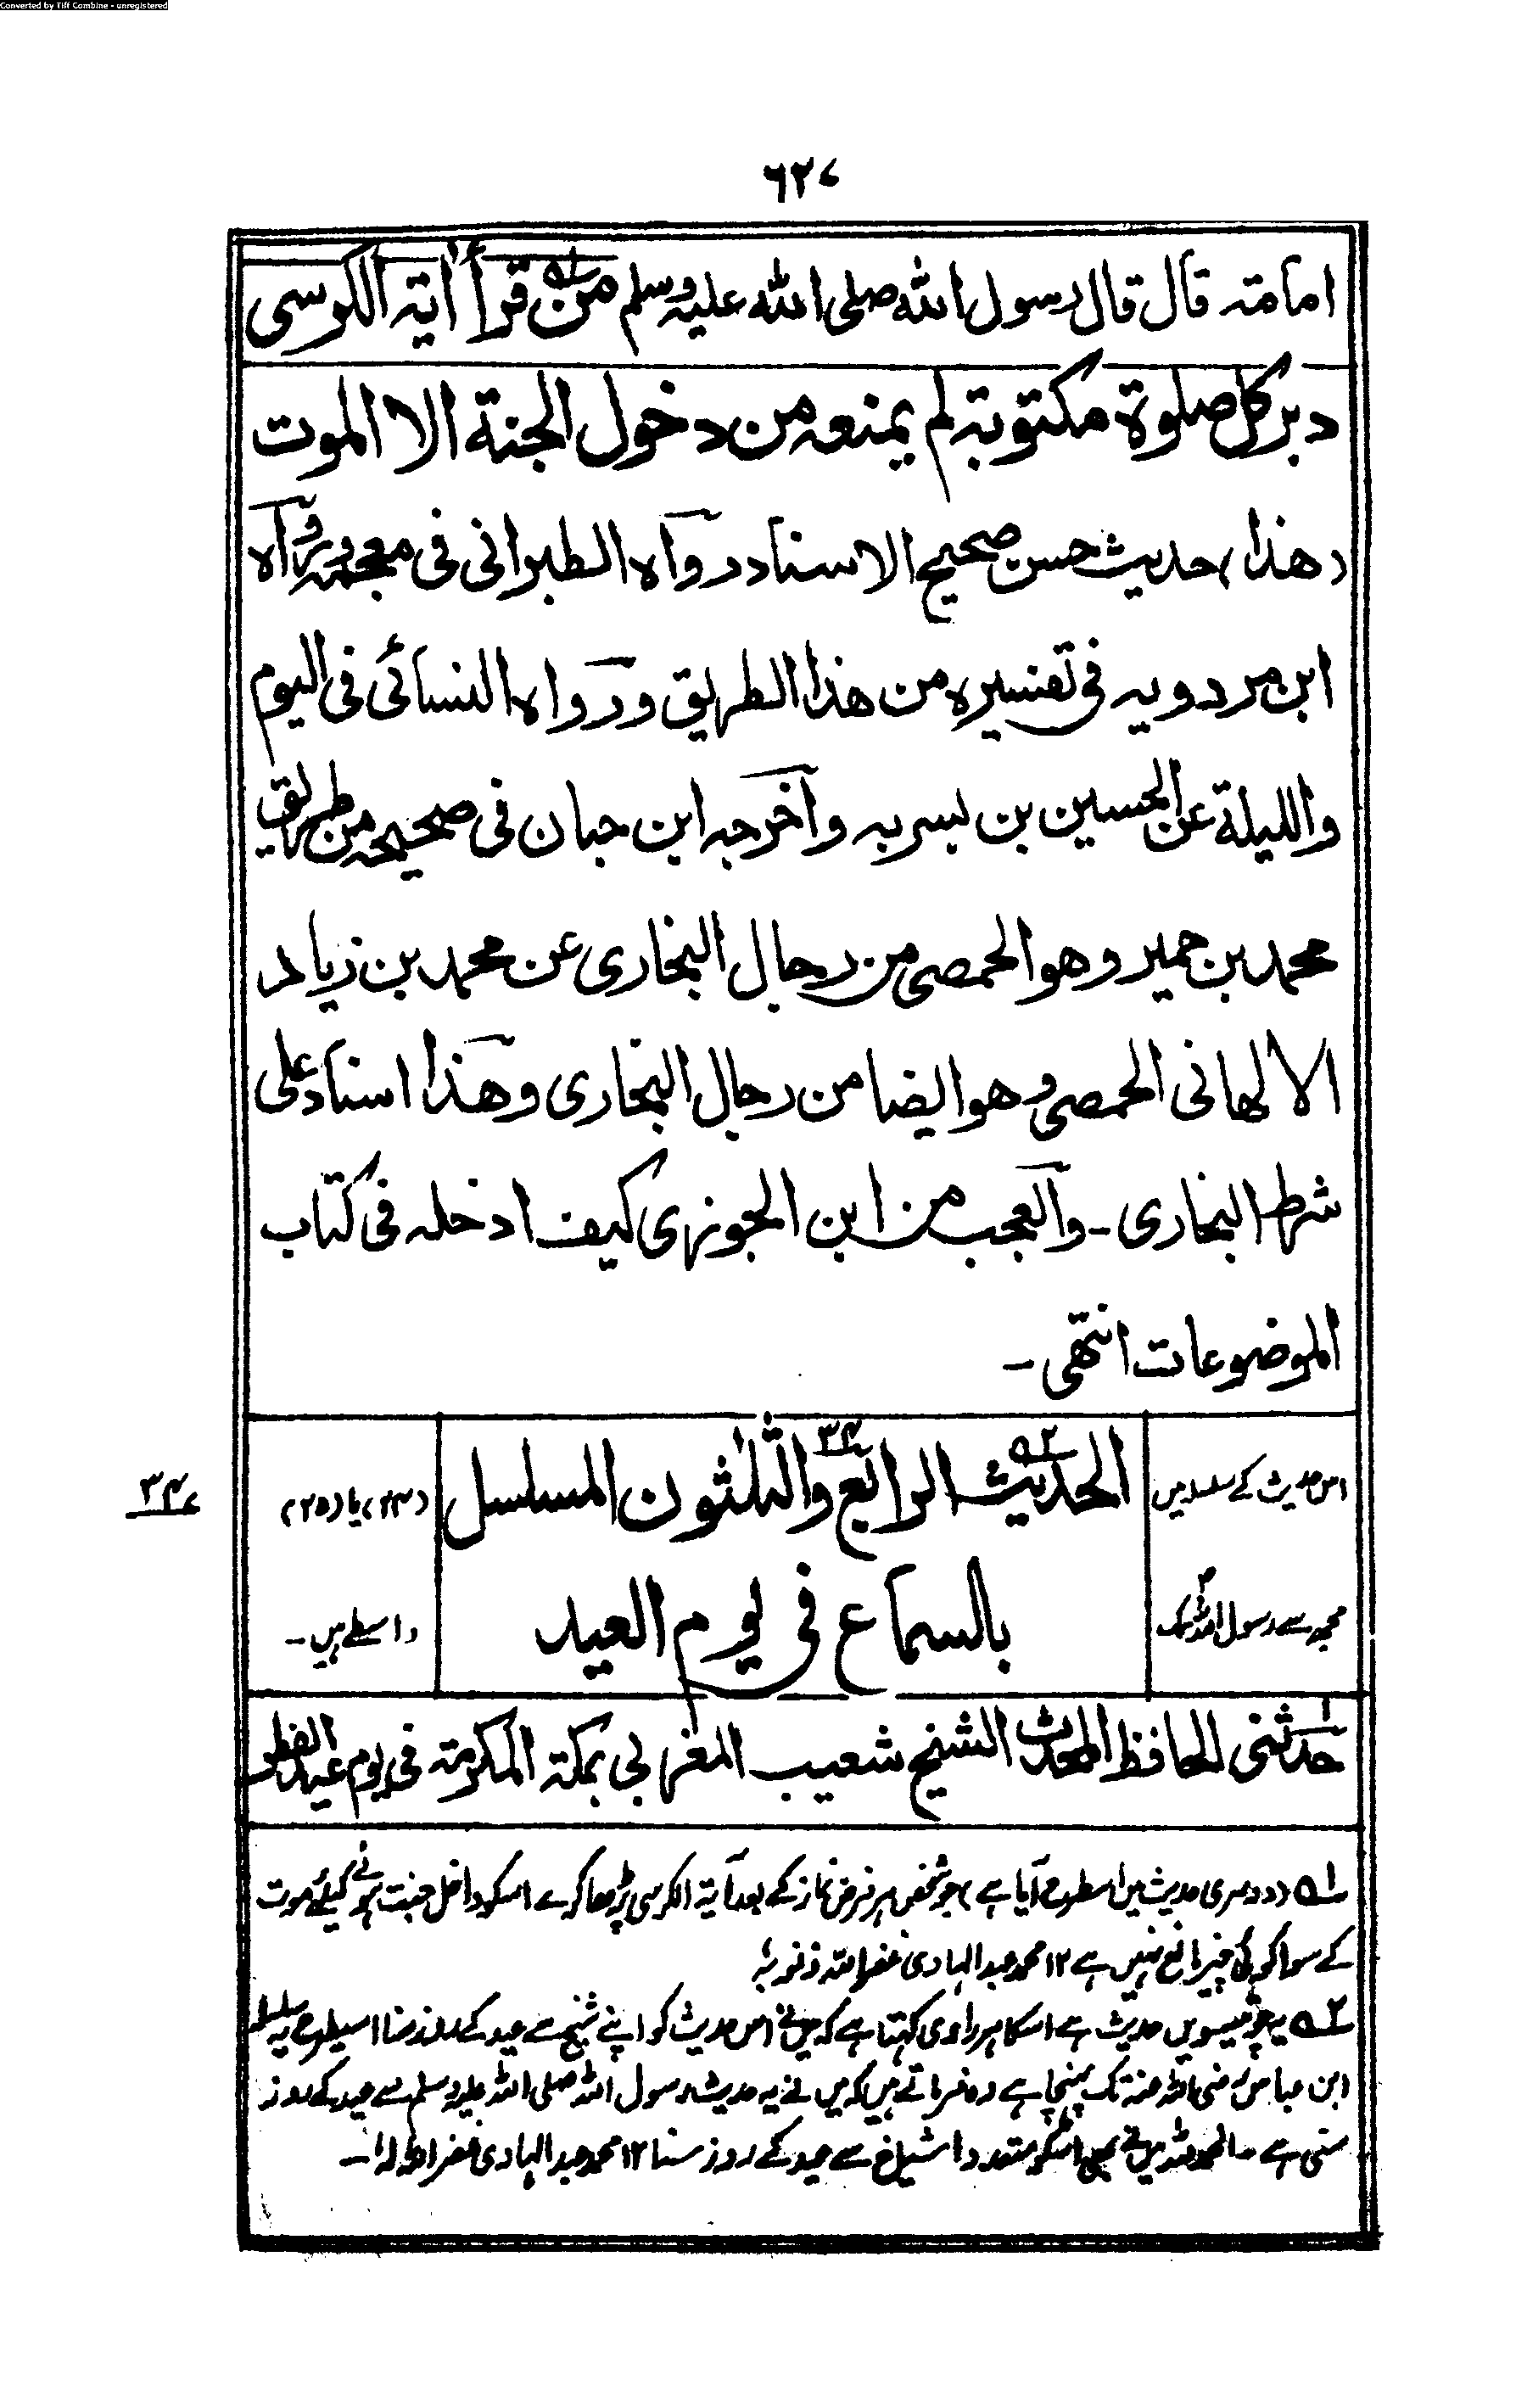 Converted by Tiff Combine - unregistered
٦٢٧
امامة قال قال رسول الله صلى الله عليه وسلم من قرأ اٰية الكرسى
دبر كل صلوة مكتوبة لم يمنعه من دخول الجنة الا الموت
(هذا) حديث حسن صحيح الاسناد رواه الطبرانى فى معجمه ورواه
ابن مردويه فى تفسيره من هذا الطريق ورواه النسائى فى اليوم
والليلة عن الحسين بن بسر به وآخرجه ابن حبان فى صحيحه من طريق
محمد بن حمير وهو الحمصى من رجال البخارى عن محمد بن زياد
الالهانى الحمصى وهو ايضا من رجال البخارى وهذا اسناد على
شرط البخارى - والعجب من ابن الجوزى كيف ادخله فى كتاب
الموضوعات انتهى -
اس حدیث کے سلسلہ میں
مجھ سے رسول اللہ تک
الحديث الرابع والثلثون المسلسل
بالسماع فى يوم العيد
(۲۴) یا (۲۵)
واسطے ہیں -
۳۴
حدثنى الحافظ المحدث الشيخ شعيب المغربى بمكة المكرمة فى يوم عيد الفطر
۱ (دوسری حدیث میں اسطرح آیا ہے) جو شخص ہر فرض نماز کے بعد آیۃ الکرسی پڑھا کرے اسکو داخل جنت ہونے کیلئے موت
کے سوا کوئی چیز مانع نہیں ہے ۱۲ محمد عبد الہادی غفر اللہ ذنوبہ
۲ یہ چونتیسویں حدیث ہے اسکا ہر راوی کہتا ہے کہ میں نے اس حدیث کو اپنے شیخ سے عید کے روز سنا اسیطرح یہ سلسلہ
ابن عباس رضی اللہ عنہ تک پہنچا ہے وہ فرماتے ہیں کہ میں نے یہ حدیث رسول اللہ صلی اللہ علیہ وسلم سے عید کے روز
سنی ہے - الحمد للہ میں نے بھی اسکو متعدد اشیاخ سے عید کے روز سنا ۱۲ محمد عبد الہادی غفر اللہ لہ -